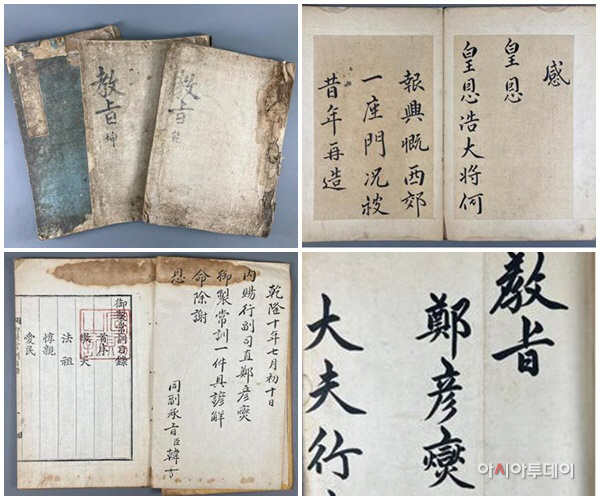 教旨 坤
教旨 乾
感
皇恩
皇恩浩大將何
報興慨西郊
一座門况被
昔年再造
乾隆十年七月初十日
內賜行副司直鄭彦燮
御製常訓一件具諺解
命除謝
恩
同副承旨臣韓
御製常訓目錄
法祖
惇親
愛民
教旨
鄭彦燮
大夫行
아시아투데이